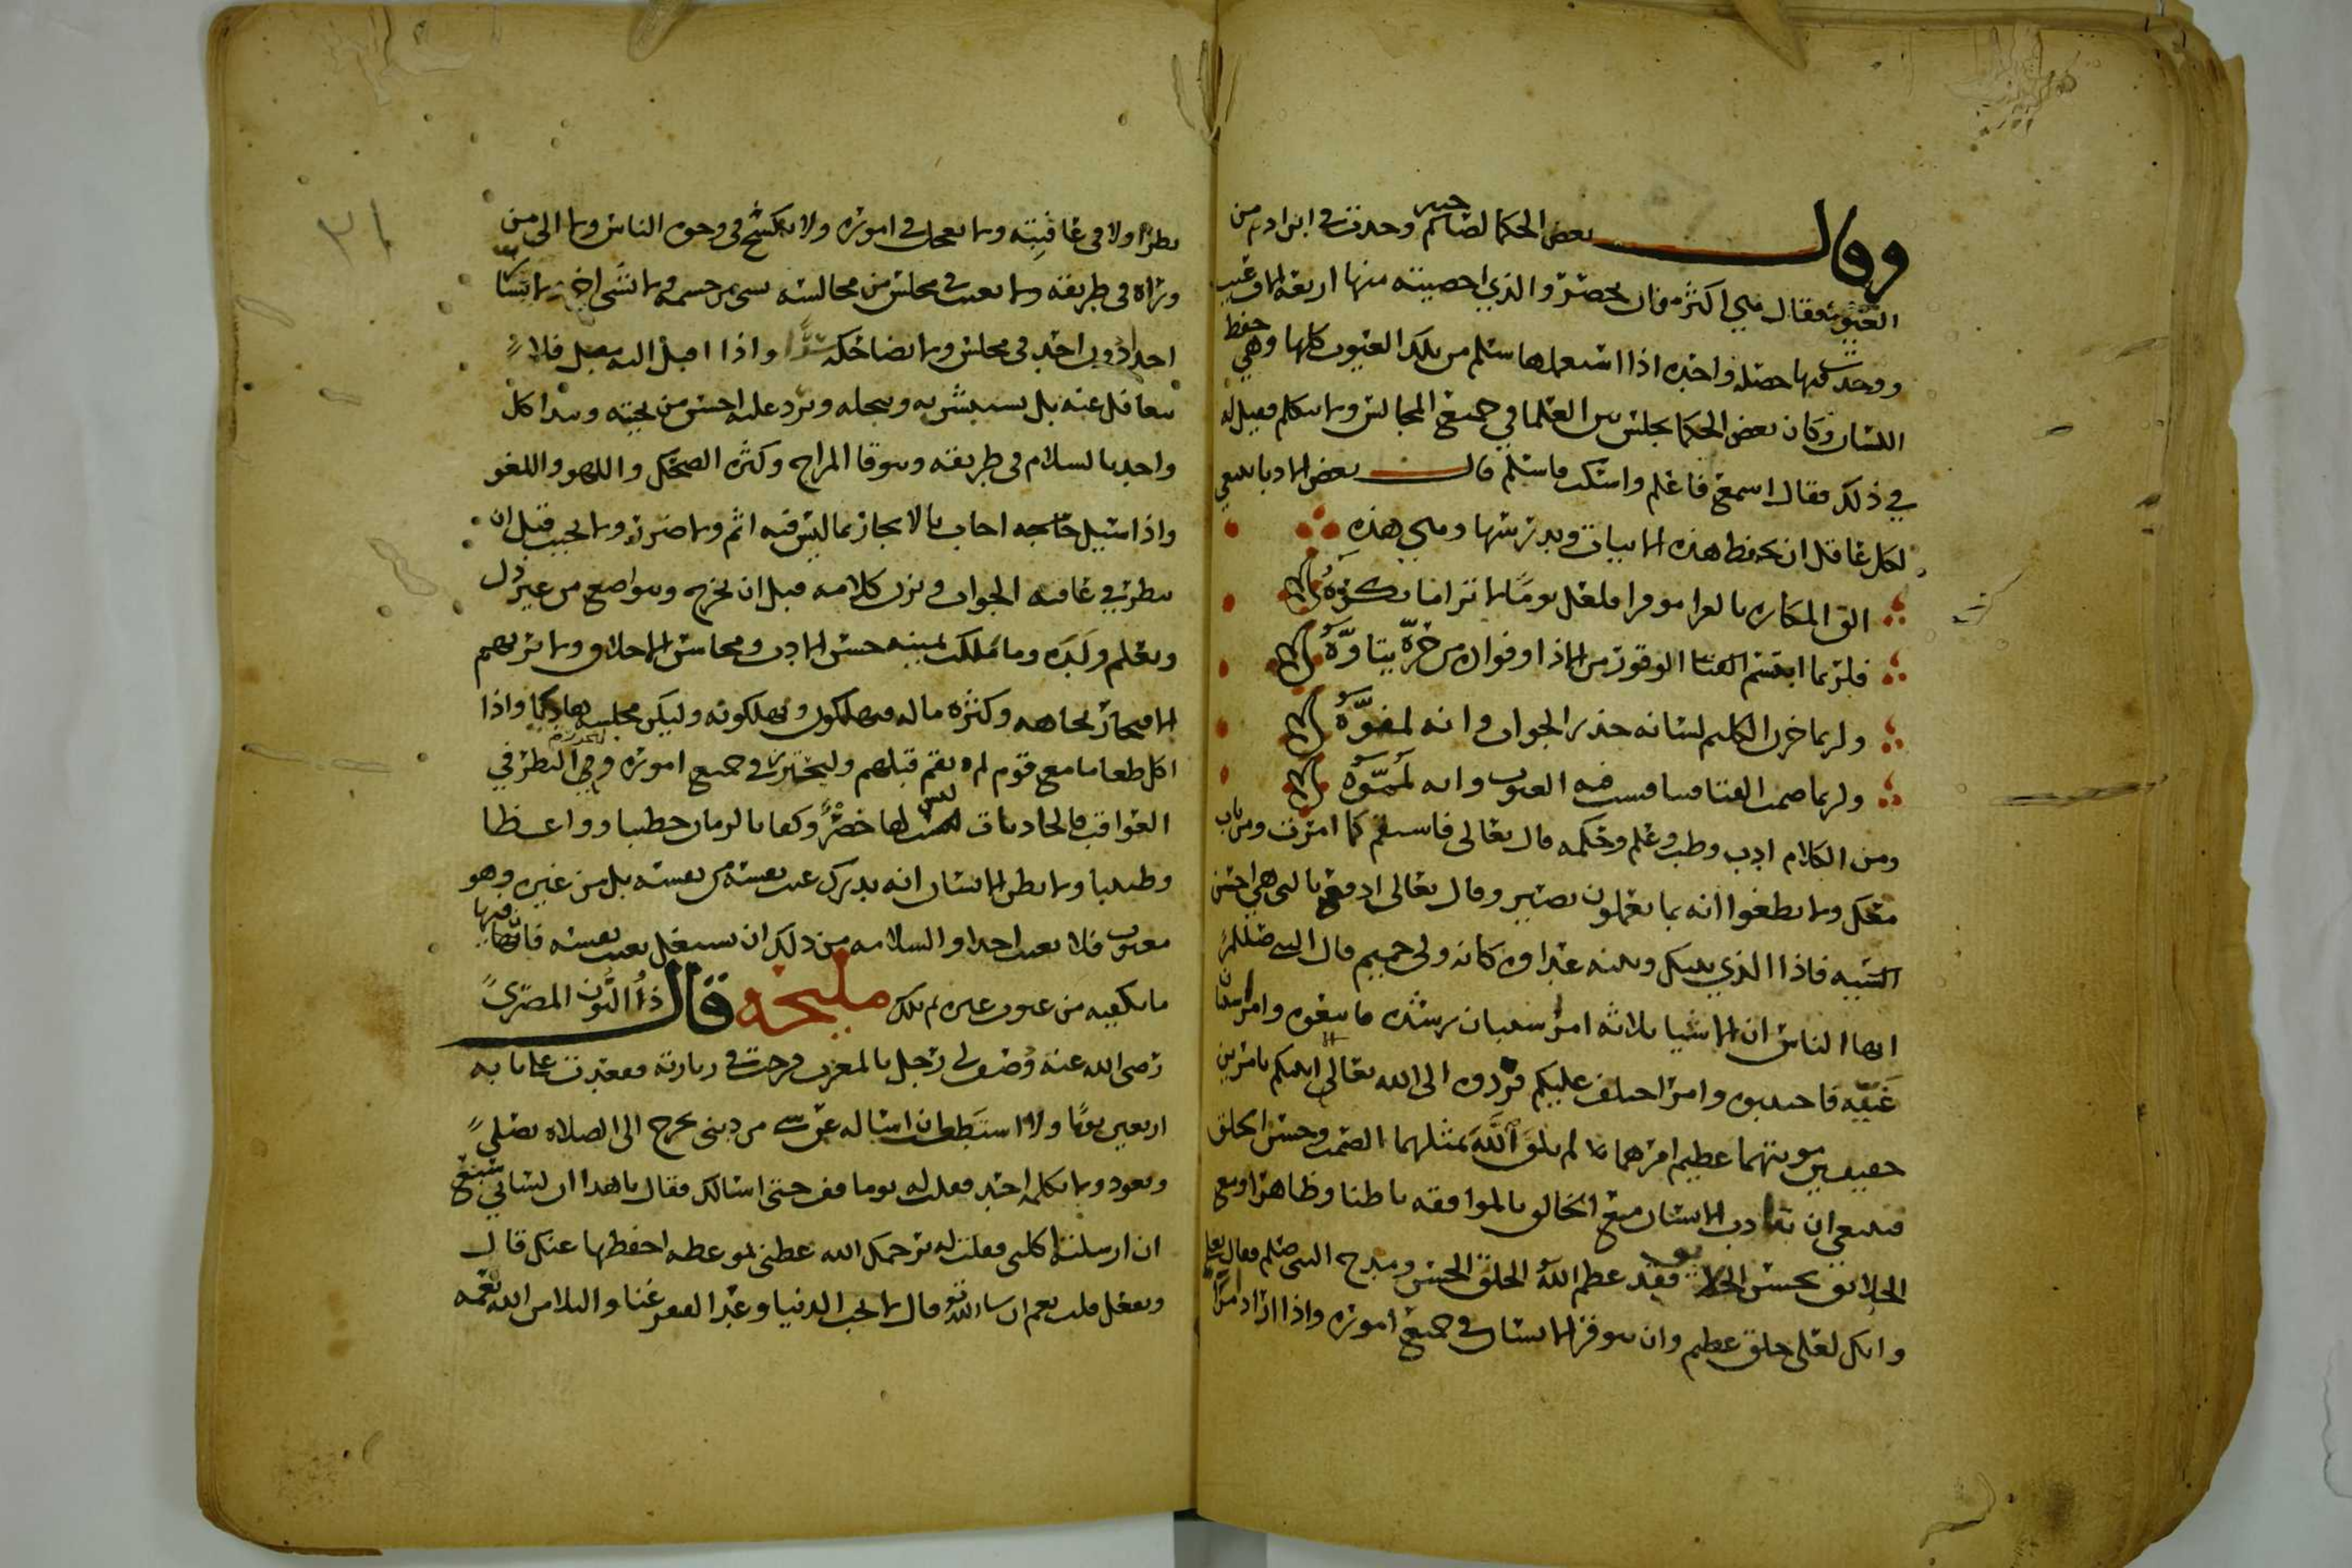 وقال بعض الحكما لصاحبه كم وجدت في ابن ادم من
العيوب فقال هي اكثر من ان تحصر والذي احصيته منها اربعة الاف عيب
ووجدت فيها خصله واحده اذا استعملها سلم من تلك العيوب كلها وهي حفظ
اللسان وكان بعض الحكما يجلس بين العلما في جميع المجالس ولا يتكلم فقيل له
في ذلك فقال اسمع فاعلم واسكت فاسلم قال بعض الادبا ينبغي
لكل عاقل ان يحفظ هذه الابيات ويدرسها وهي هذه
الق المكاره بالعزا موفرا فلعل يوما لا ترا ما تكره
فلربما ابتسم الفتا الوقور من الاذا وفواده من حره يتاوه
ولربما خزن الكليم لسانه حذر الجواب وانه لمفوه
ولربما صمت الفتا فتنافست فيه العيوب وانه لمموه
ومن الكلام ادب وطب وعلم وحكمه قال تعالى فاستقم كما امرت ومن تاب
معك ولا تطغوا انه بما تعملون بصير وقال تعالى ادفع بالتي هي احسن
السيه فاذا الذي بينك وبينه عداوه كانه ولي حميم قال النبي صللم
ايها الناس ان الاشيا ثلاثه امر استبان رشده فاتبعوه وامر استبان
غيه فاجتنبوه وامر اختلف عليكم فردوه الى الله تعالى انبيكم بامرين
خفيفين مونتهما عظيم اجرهما لم يلق الله بمثلهما الصمت وحسن الخلق
فينبغي ان يتادب الانسان مع الخالق بالموافقه باطنا وظاهرا ومع
الخلايق بحسن الخلق فقد عظم الله الخلق الحسن ومدح النبي صلم فقال تعالى
وانك لعلى خلق عظيم وان يتوقر الانسان في جميع اموره واذا اراد امرا
٣١
نظر اولا في عاقبته ولا يعجل في اموره ولا يكشح في وجوه الناس ولا الى من
يراه في طريقه ولا يعبث في مجلس من مجالسه بشي من جسمه ولا بشي اخر
احدا دون احد في مجلس ولا يضاحكه سرا واذا اقبل اليه مقبل فلا
يتغافل عنه بل يستبشر به ويبجله ويرد عليه احسن من تحيته ويبدا كل
واحد بالسلام في طريقه ويتوقا المزاح وكثره الضحك واللهو واللغو
واذا سيل حاجه اجاب بالايجاز بما ليس فيه اثم ولا ضرر ولا يجيب قبل ان
ينظر في عاقبه الجواب ويزن كلامه قبل ان يخرج ويتواضع من غير ذل
ويعلم ولده وما ملكت يمينه حسن الادب ومحاسن الاخلاق ولا يربهم
الافتخار بجاهه وكثره ماله فيهلكون ويهلكونه وليكن مجلسه هاديا واذا
اكل طعاما مع قوم لم يقم قبلهم وليحترز في جميع اموره وهي النظر في
العواقب فالحادثات ليس لها حصر وكفا بالزمان خطيبا وواعظا
وطبيبا ولا يظن الانسان انه يدرك عيب نفسه من نفسه بل من غيره وهو
معيوب فلا يعيب احدا والسلامه من ذلك ان يشتغل بعيب نفسه فان فيها
ما يكفيه من عيوب غيره مليحه قال ذا النون المصري
رضي الله عنه وصف لي رجل بالمغرب فرحت في زيارته فقعدت على بابه
اربعين يوما ولا استطعت ان اساله عن شي من ديني يخرج الى الصلاه يصلي
ويعود ولا يكلمه احد فقلت له يوما قف حتى اسالك فقال يا هذا ان لساني سبع
ان ارسلته اكلني فقلت له يرحمك الله عظني بموعظه احفظها عنك قال
وتفعل قلت نعم ان شا الله قال لا تحب الدنيا وعد الفقر غنا والبلا من الله نعمه